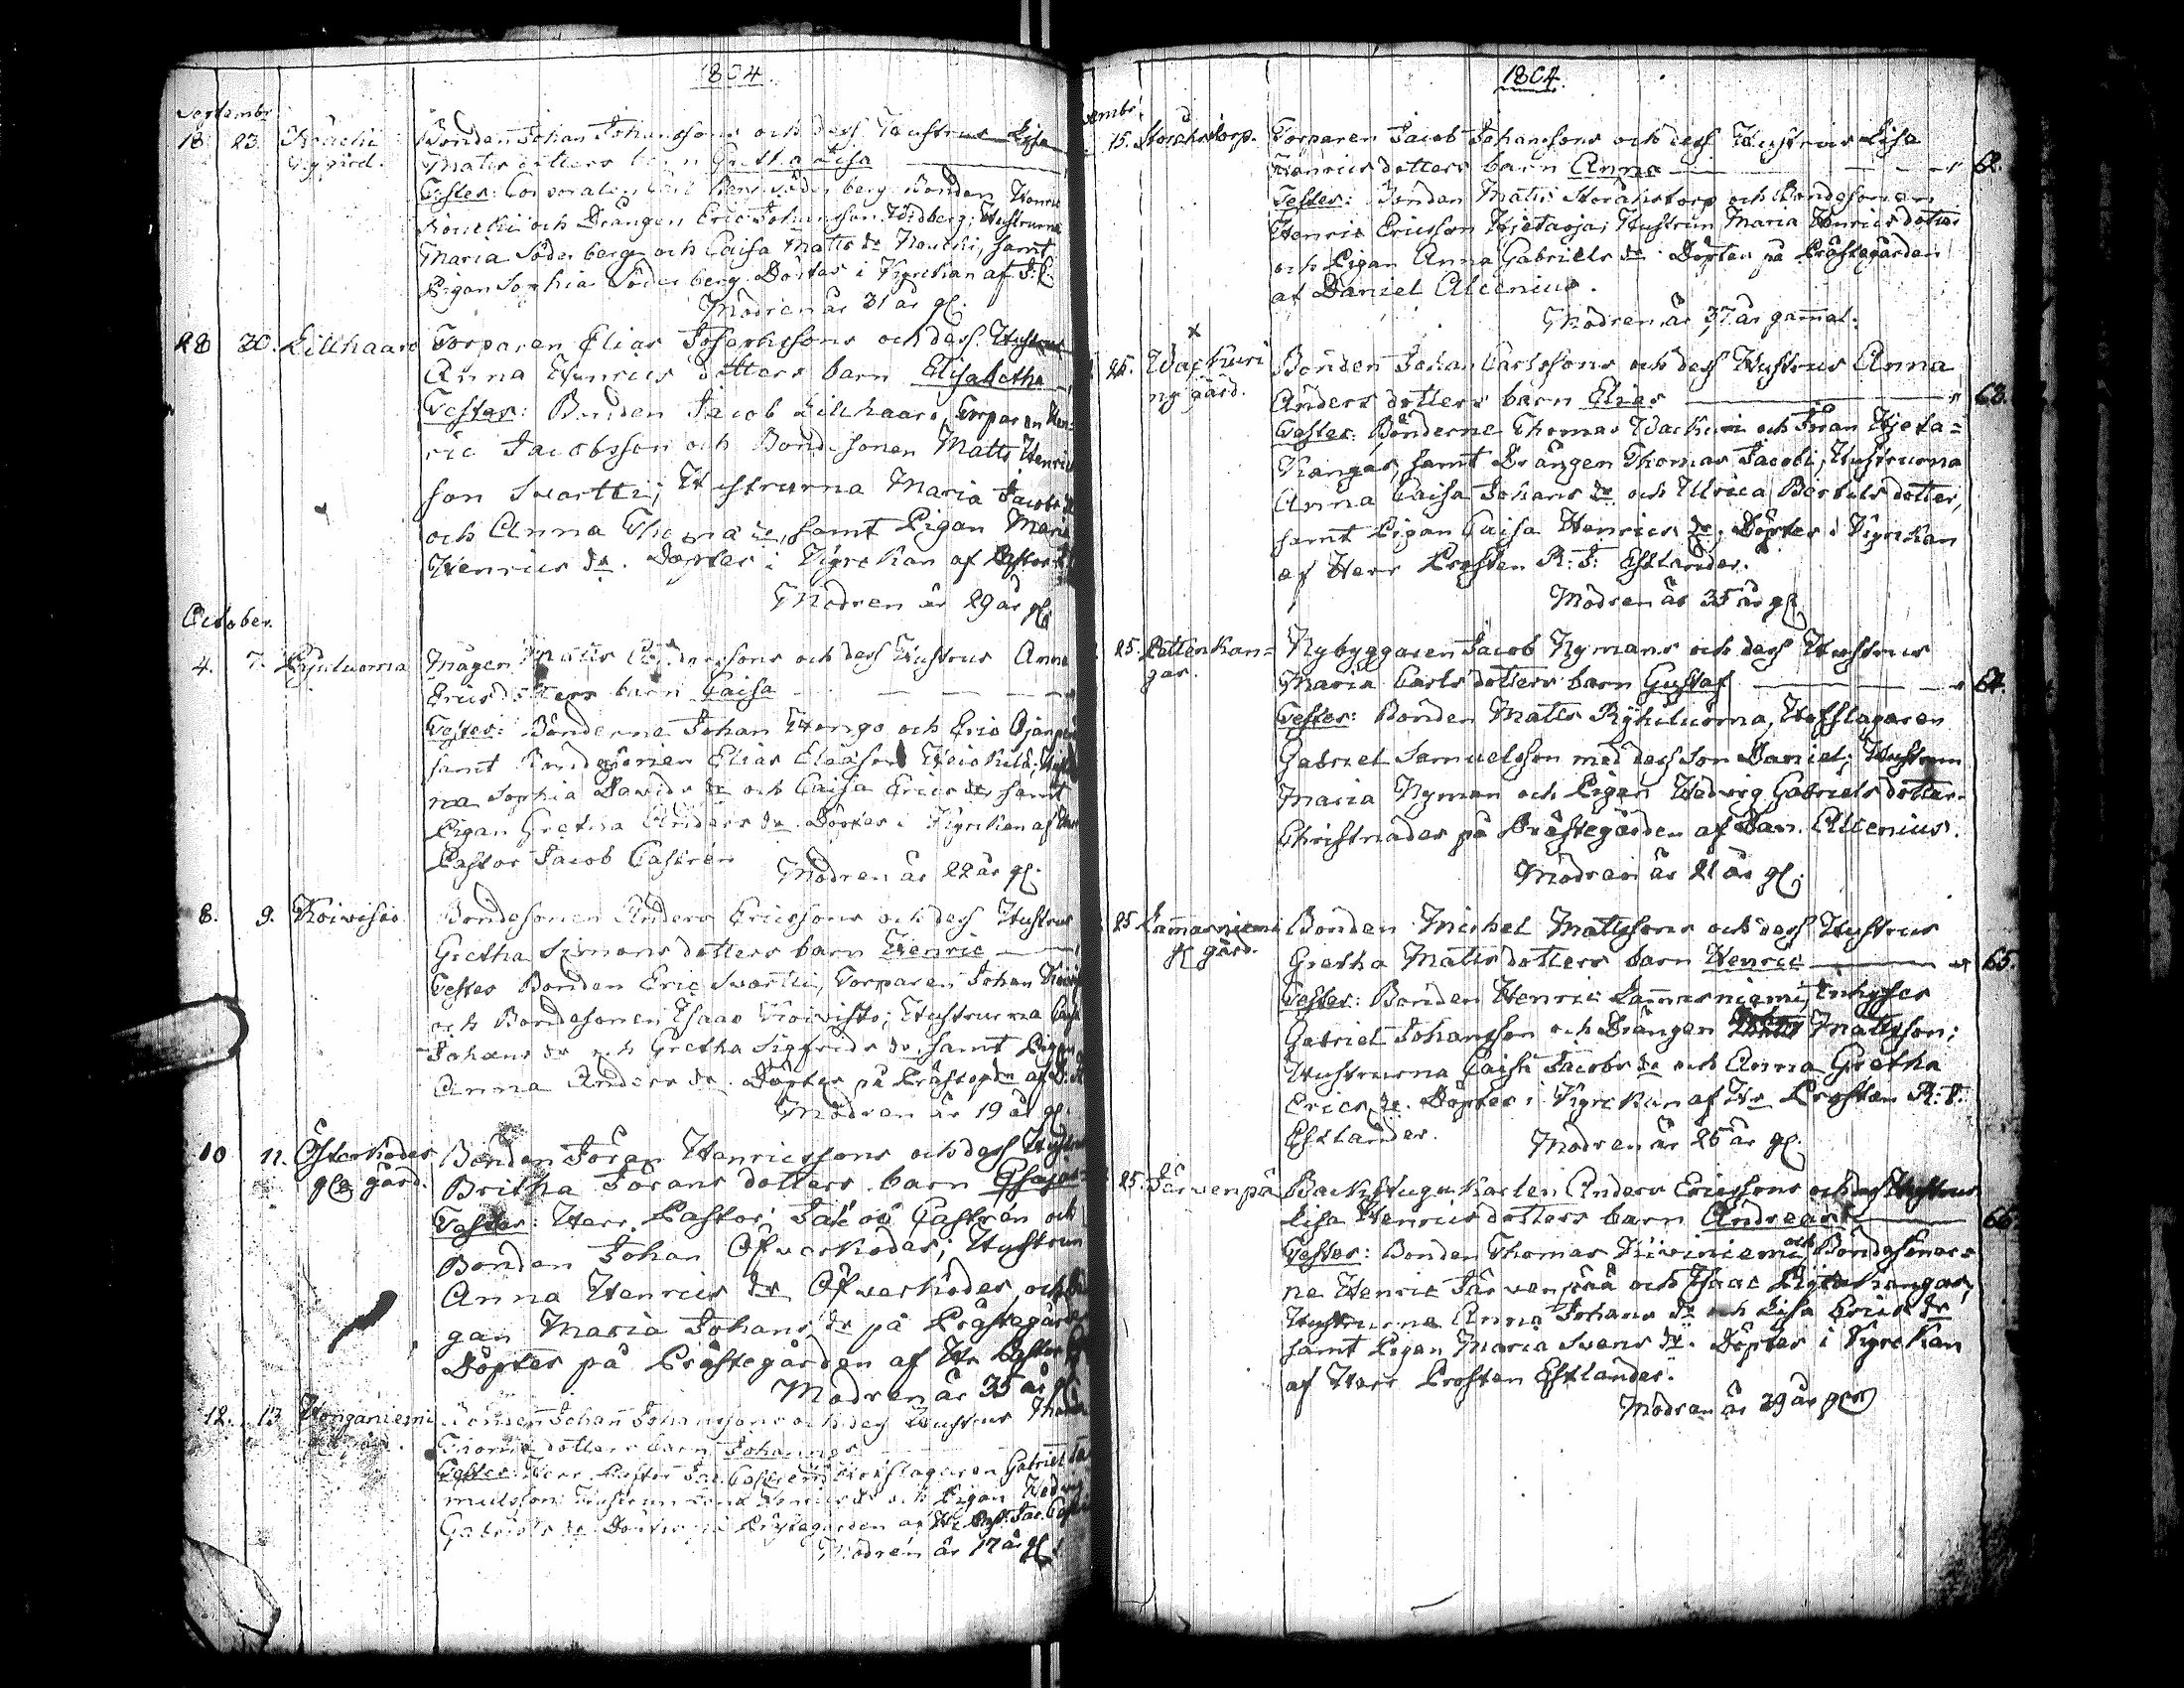 1804.
Septembr
18 23. Kouchi Bonden Johan Johanssons och dess Hustrus Lisa
ny gård. Matts dotters barn Gretta Lisa
Testes: Corporalen Carl Söderberg Bonden Henric
Kouchi och Drängen Eric Johansson Widberg; Hustrurna
Maria Söderberg och Caisa Matts dr Kouchi, samt
Pigan Sophia Söderberg Döptes i Kyrckan af J:C:
Modren är 31 år gl.
28 30. Lillhaaro Torparen Elias Josephssons och dess Hustrus
Anna Henrics dotters barn Elisabetha
Testes: Bonden Jacob Lillhaaro, Torparen Hen=
ric Jacobsson och Bondesonen Matts Henrics
son Svartti; Hustrurna Maria Jacobs dr
och Anna Thomæ dr, samt Pigan Maria
Henrics dr. Döptes i Kyrckan af Pastor
Modren är 29 år gl.
October.
4. 7. Pyuluoma Mågen Matts Anderssons och dess Hustrus Anna
Erics dotters barn Caisa
Testes: Bönderne Johan Hongo och Eric Ojanperä
samt Bondesonen Elias Eliæson Heickilä; Hustrur
na Sophia Davids dr och Caisa Erics dr samt
Pigan Gretha Anders dr. Döptes i Kyrckan af Herr
Pastor Jacob Castrén
Modren är 22 år gl.
8. 9. Koivisto Bondesonen Anders Ericssons och dess Hustrus
Gretha Simons dotters barn Henric
Testes Bonden Eric Svartti, Torparen Johan
och Bondesonen Esaac Koivisto; Hustrurna Caisa
Johans dr och Gretha Sigfrids dr, samt Pigan
Anna Anders dr. Döptes på Prästegdn af
Modren är 19 år gl.
10 11. Österködes Bonden Jöran Henricssons och dess Hustrus
gla gård. Britha Jörans dotters barn Esajas
Testes: Herr Pastor Jacob Castrén och
Bonden Johan Öfverködes; Hustrun
Anna Henrics dr Öfverködes, och Pi
gan Maria Johans dr på Prästegården
Döptes på Prästegården af Hr Pastor
Modren är 35 år gl.
12. 13 Honganiemi Bonden Johan Johanssons och dess Hustrus Maria
Thomæ dotters barn Johannes
Testes: Herr Pastor Jac. Castrén Hofslagaren Gabriel Sa
muelsson Hustrun Henrics dr och Pigan Hedvig
Gabriels dr Döptes på Prästegården af Hr Past. Jac. Castrén
Modren är 17 år gl.
1804.
15. Storåhstorp. Torparen Jacob Johanssons och dess Hustrus Lisa
Henrics dotters barn Anna 62.
Testes: Bonden Matts Storåhstorp och Bondesonen
Henric Ericsson Hietaoja; Hustrun Maria Henrics dotter
och Pigan Anna Gabriells dr. Döptes på Prästegården
af Daniel Alcenius.
Modren är 37 år gammal.
x
Wackuri Bonden Johan Carlssons och dess Hustrus Anna
ny gård. Anders dotters barn Elias 63.
Testes: Bönderne Thomas Wackuri och Jöran Hjeta=
Kangas, samt Drängen Thomas Jacobi; Hustrurna
Anna Caisa Johans dr och Ulrica Bertils dotter,
samt Pigan Caisa Henrics dr. Döptes i Kyrckan
af Herr Prosten R: J: Estlander.
Modren är 35 år gl
25. Petten Kan= Nybyggaren Jacob Nymans och dess Hustrus
gas. Maria Carls dotters barn Gustaf 64.
Testes: Bonden Matts Ryhiluoma, Hofslagaren
Gabriel Samuelsson med dess Son Daniel; Hustrun
Maria Nyman och Pigan Hedvig Gabriels dotter.
Christnades på Prästegården af Dan. Alcenius.
Modren är 21 år gl.
25 Lamasniemi Bonden Michel Mattssons och dess Hustrus
gl gård. Gretha Matts dotters barn Henric 65.
Testes: Bonden Henric Lamasniemi, Inhyses
Gabriel Johansson och Drängen Mattsson;
Hustrurna Caisa Jacobs dr och Anna Gretha
Erics dr. Döptes i Kyrckan af Hr Prosten R: J:
Estlander. Modren är 26 år gl.
25. Järvenpä Backstugu Karlen Anders Ericssons och dess Hustrus
Lisa Henrics dotters barn Andreas 66.
Testes: Bonden Thomas Kiviniemi och Bondesöner
ne Henric Järvenpää och Isaac Pijtokangas,
Hustrurna Anna Johans dr och Lisa Erics dr
samt Pigan Maria Svens dr. Döptes i Kyrckan
af Herr Prosten Estlander.
Modren är 39 år gl